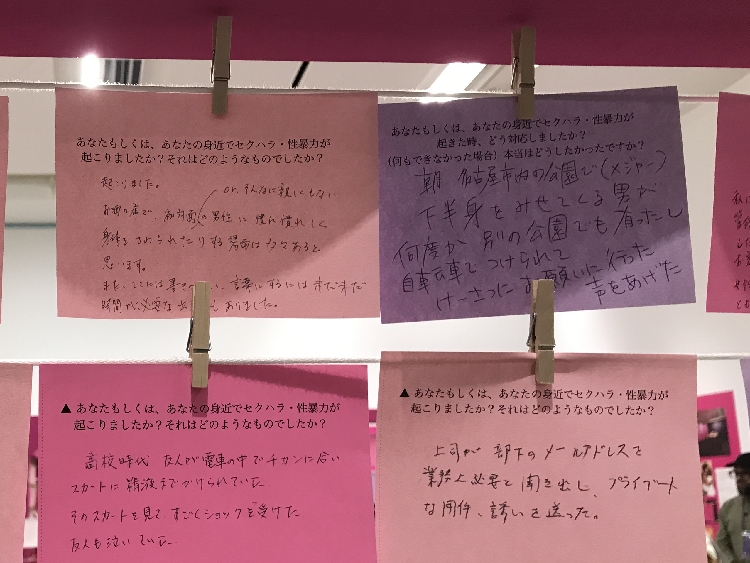 あなたもしくは、あなたの身近でセクハラ・性暴力が
起こりましたか？それはどのようなものでしたか？
起こりました。
or, そんなに親しくもない
お酒の店で、初対面の男性に慣れ慣れしく
身体をさわられたりする場面は多々あると
思います。
また、ここには書きづらい、言葉にするには まだまだ
時間が必要な出来事もありました。
あなたもしくは、あなたの身近でセクハラ・性暴力が
起きた時、どう対応しましたか？
(何もできなかった場合) 本当はどうしたかったですか？
朝 名古屋市内の公園で(メジャー)
下半身をみせてくる男が
何度か 別の公園でも有ったし
自転車でつけられて
けーさつにお願いに行った
声をあげた
▲ あなたもしくは、あなたの身近でセクハラ・性暴力が
起こりましたか？それはどのようなものでしたか？
高校時代 友人が電車の中でチカンに合い
スカートに精液までかけられていた
そのスカートを見て すごくショックを受けた
友人も泣いていた
▲ あなたもしくは、あなたの身近でセクハラ・性暴力が
起こりましたか？それはどのようなものでしたか？
上司が 部下のメールアドレスを
業務上必要と聞き出し、プライベート
な用件、誘いを送った。